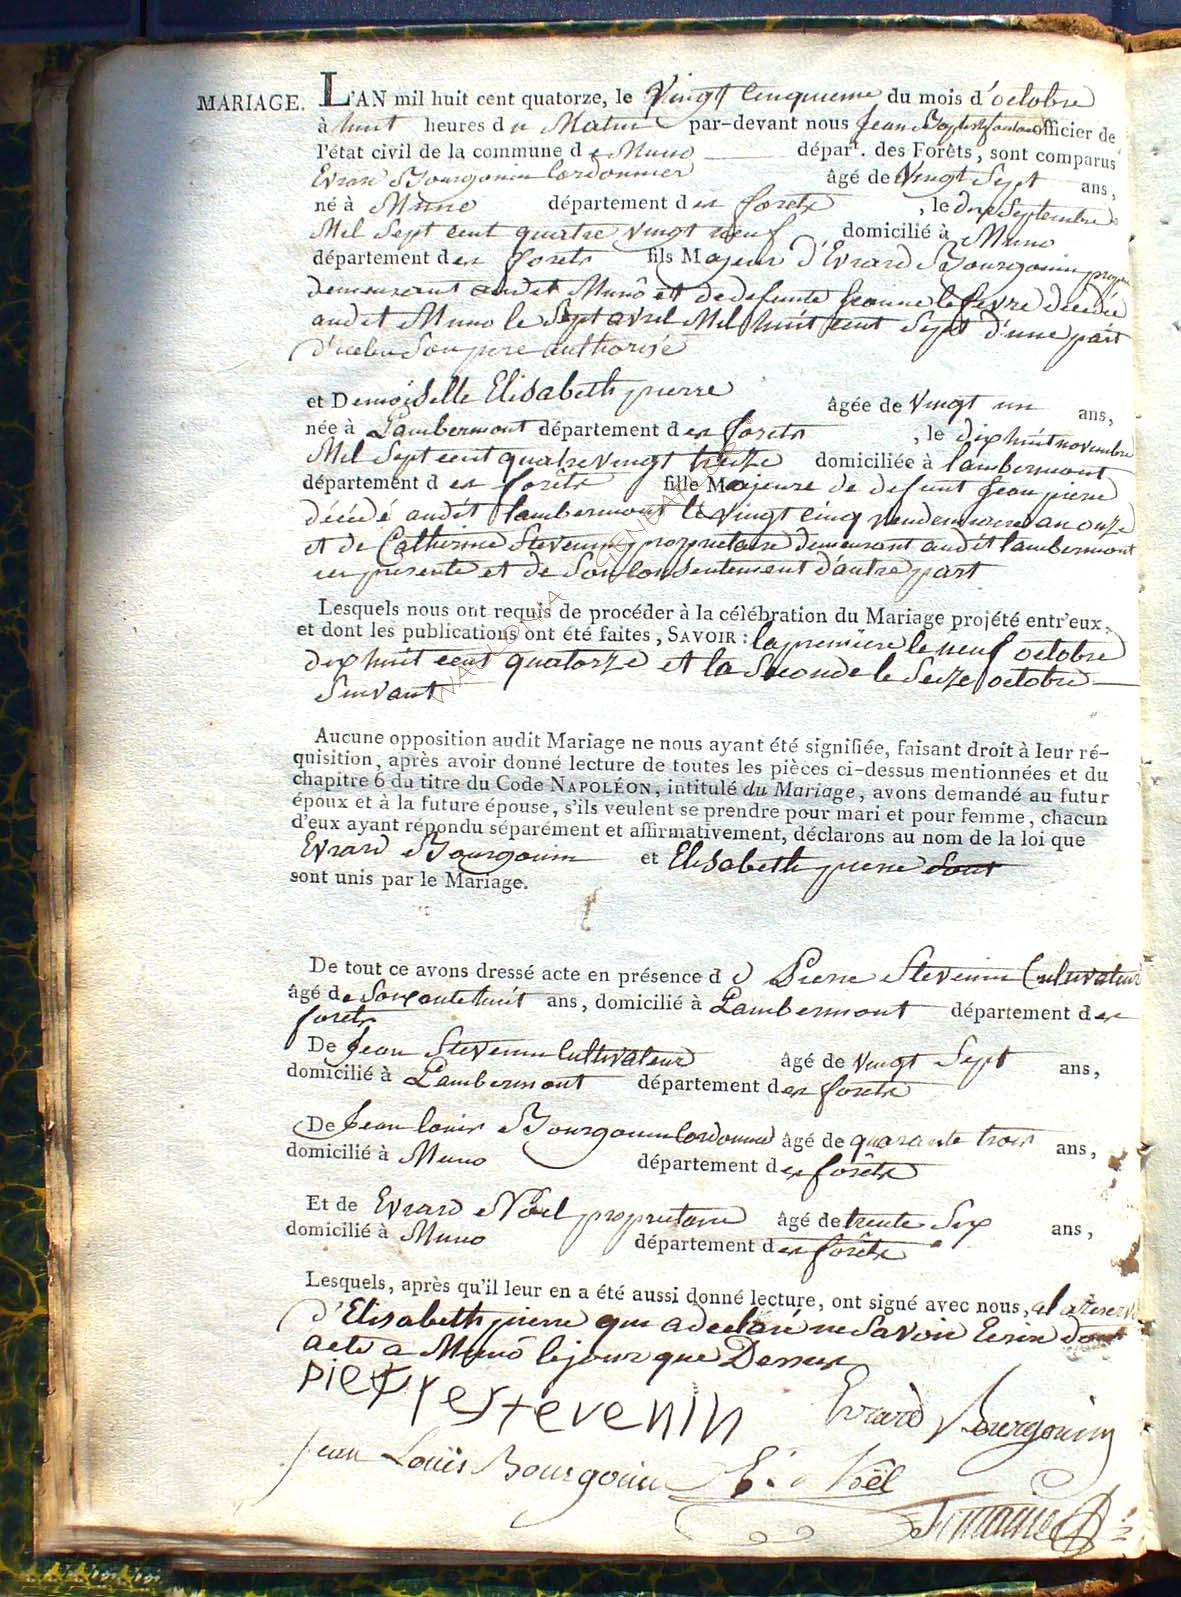 MARIAGE. L'AN mil huit cent quatorze, le Vingt cinquieme du mois d'octobre
à huit heures du Matin par-devant nous Jean Baptiste fontaine officier de
l'état civil de la commune de Muno dépar.t des Forêts, sont comparus
Evrard Bourgouin Cordonnier âgé de Vingt Sept ans,
né à Muno département des forets, le Septembre
Mil Sept cent quatre vingt neuf domicilié à Muno
département des forets fils Majeur d'Evrard Bourgouin
demeurant audit Muno et de defunte Jeanne lefevre décédée
audit Muno le Sept avril Mil huit cent Sept d'une part
d'icelui Son pere authorisé
et Demoiselle Elisabeth pierre âgée de vingt un ans,
née à Lambermont département des forets, le dix huit novembre
Mil Sept cent quatre vingt treize domiciliée à lambermont
département des forêts fille Majeure de defunt Jean pierre
décédé audit lambermont le vingt cinq vendemiaire an onze
et de Catherine Stevenin propriétaire demeurant audit lambermont
ici presente et de Son Consentement d'autre part
Lesquels nous ont requis de procéder à la célébration du Mariage projété entr'eux,
et dont les publications ont été faites, SAVOIR: la premiere le neuf octobre
dix huit cent quatorze et la Seconde le Seize octobre
Suivant
Aucune opposition audit Mariage ne nous ayant été signifiée, faisant droit à leur ré-
quisition, après avoir donné lecture de toutes les pièces ci-dessus mentionnées et du
chapitre 6 du titre du Code NAPOLÉON, intitulé du Mariage, avons demandé au futur
époux et à la future épouse, s'ils veulent se prendre pour mari et pour femme, chacun
d'eux ayant répondu séparément et affirmativement, déclarons au nom de la loi que
Evrard Bourgouin et Elisabeth pierre sont
sont unis par le Mariage.
De tout ce avons dressé acte en présence de Pierre Stevenin Cultivateur
âgé de Soixante huit ans, domicilié à Lambermont département des
forets
De Jean Stevenin Cultivateur âgé de vingt Sept ans,
domicilié à Lambermont département des forets
De Jean louis Bourgouin Cordonnier âgé de quarante trois ans,
domicilié à Muno département des forêts
Et de Evrard Noël propriétaire âgé de trente Six ans,
domicilié à Muno département des forêts
Lesquels, après qu'il leur en a été aussi donné lecture, ont signé avec nous, a la reserve
d'Elisabeth pierre qui a declaré ne Savoir Ecrire dont
acte a Muno le jour que Dessus
pierre stevenin Evrard Bourgouin
Jean Louis Bourgouin E. Noël
fontaine